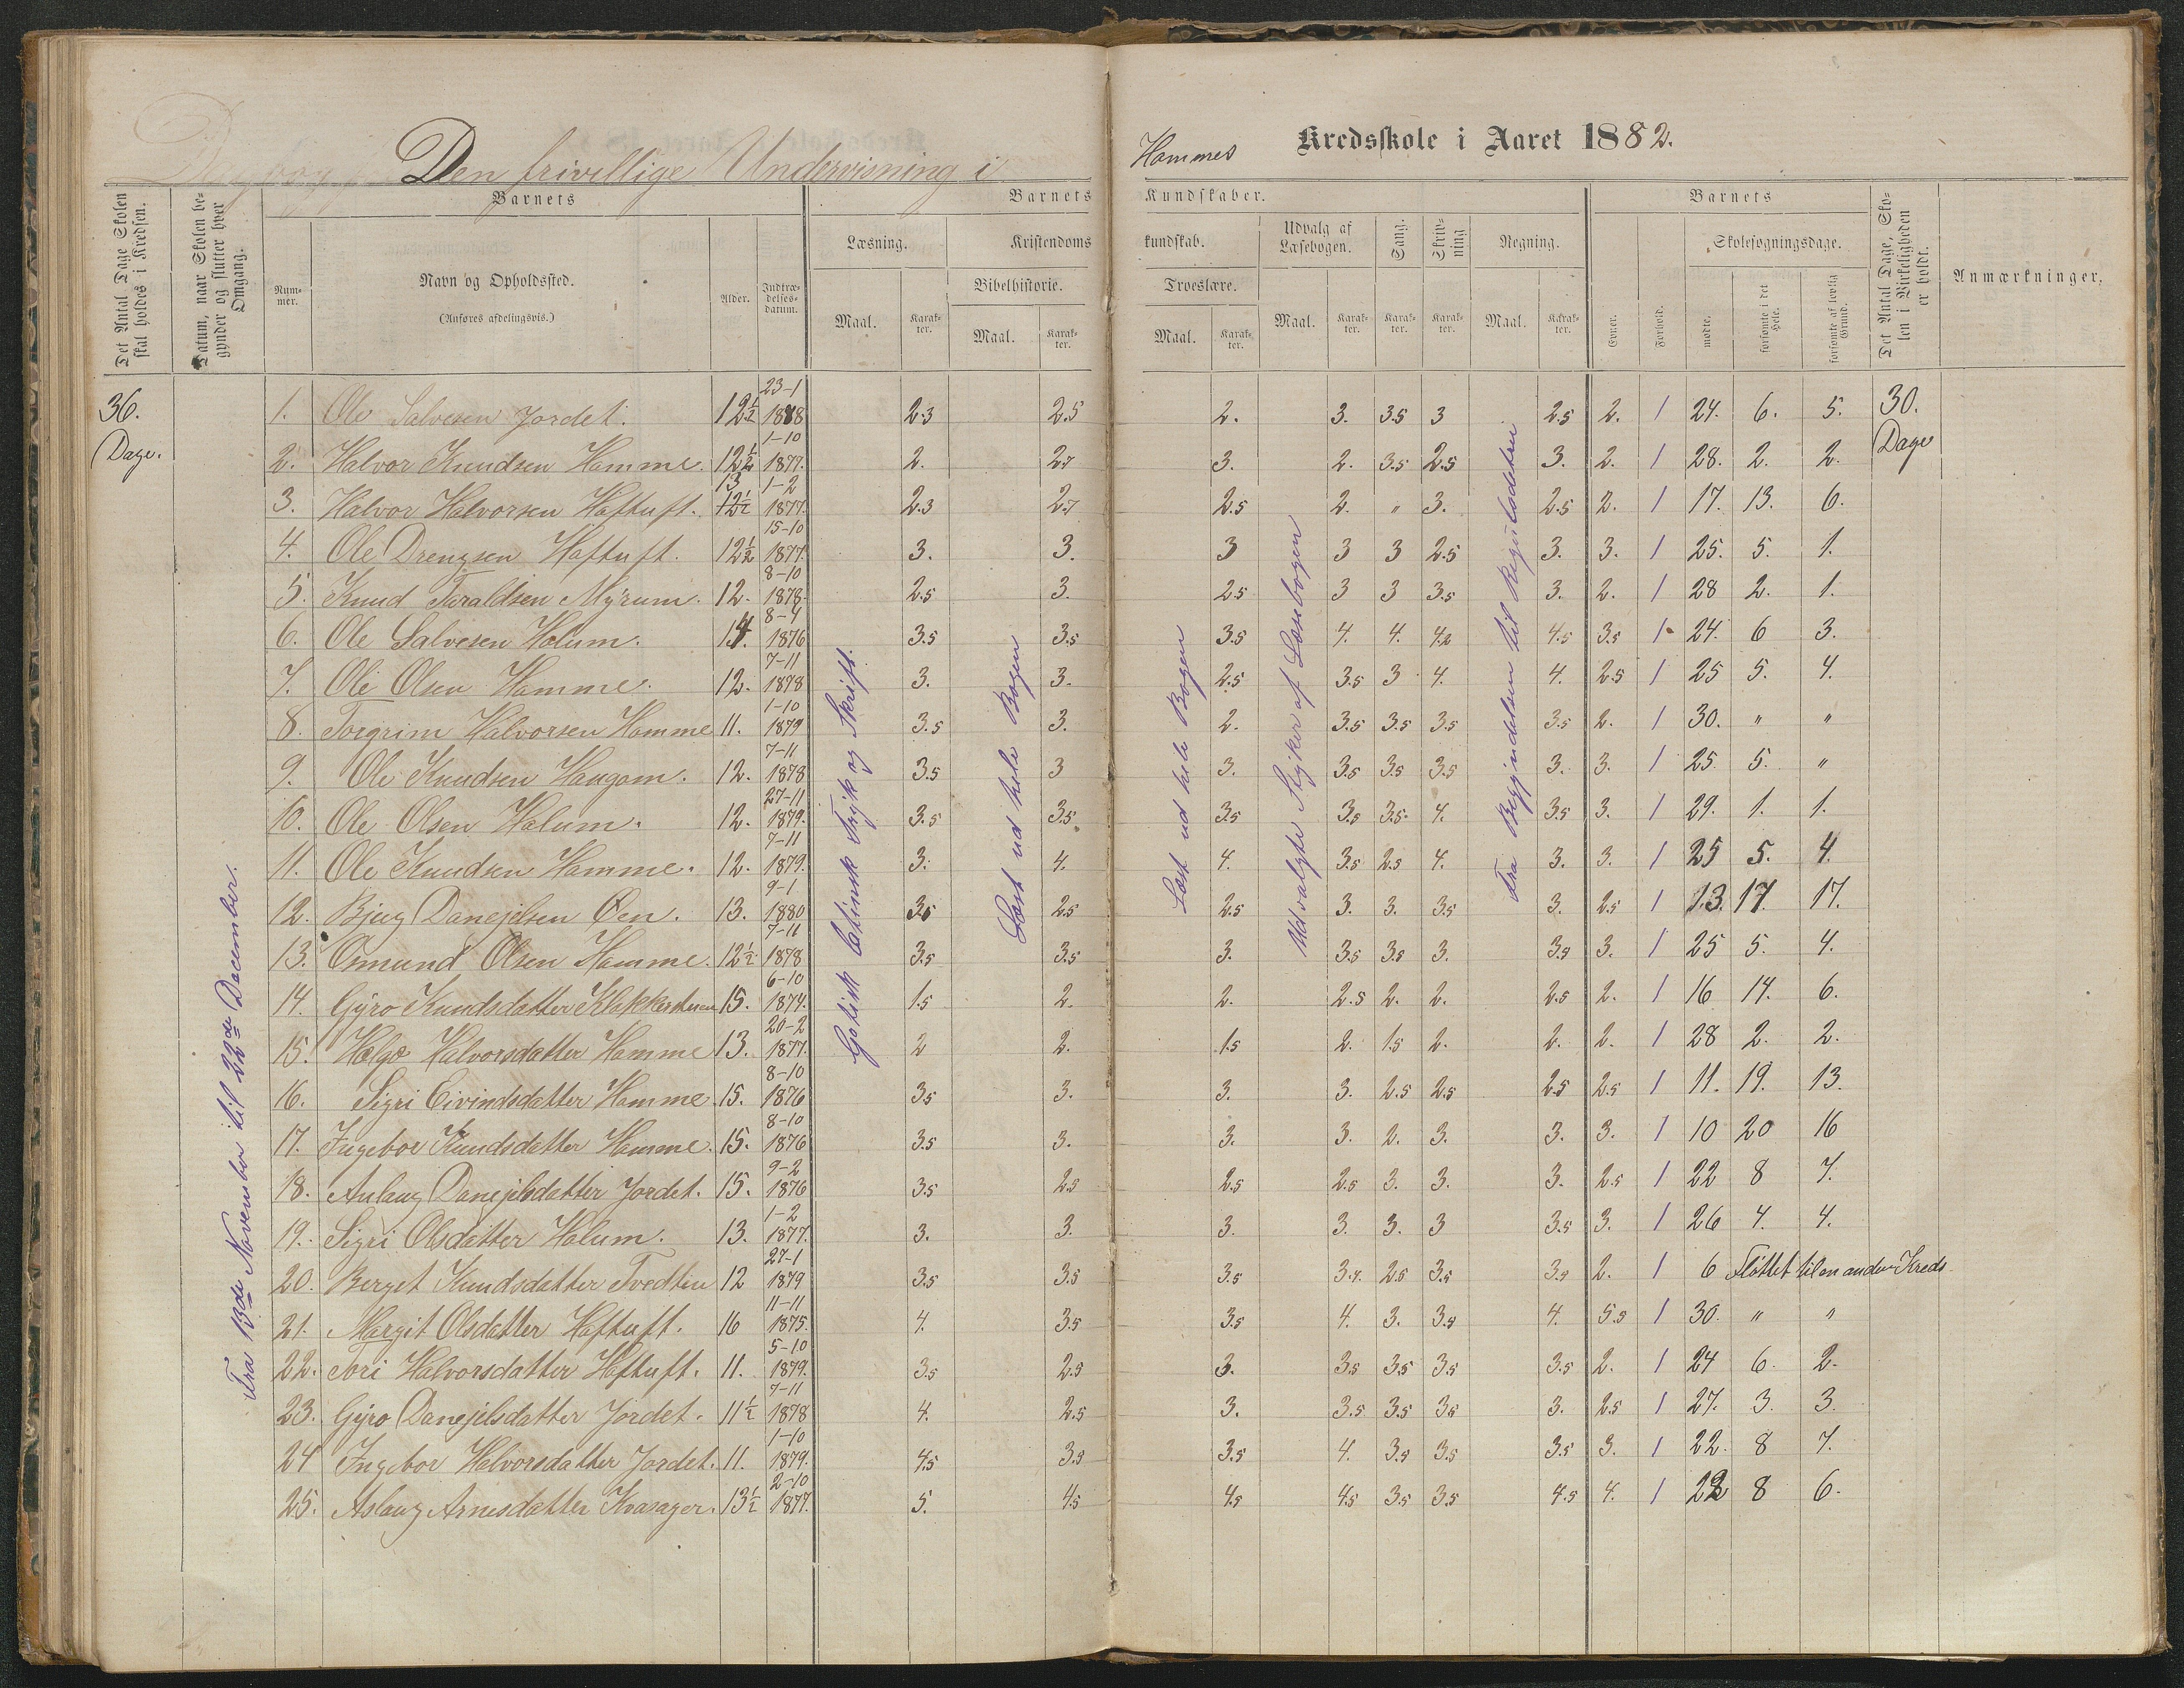 Den frivillige Undervisning i
Hommes Kredsskole i Aaret 1882.
Det Antal Dage Skolen skal holdes i Kredsen.
Datum, naar Skolen begynder og slutter hver Omgang.
Barnets
Nummer.
Navn og Opholdssted.
(Anføres afdelingsvis.)
Alder.
Indtrædelsesdatum.
Barnets Kundskaber.
Læsning.
Maal.
Karakter.
Kristendomskundskab.
Bibelhistorie.
Maal.
Karakter.
Troeslære.
Maal.
Karakter.
Udvalg af Læsebogen.
Maal.
Karakter.
Sang.
Karakter.
Skrivning
Karakter.
Regning.
Maal.
Karakter.
Barnets
Evner.
Forhold.
Skolesøgningsdage.
mødte.
forsømte i det Hele.
forsømte af lovlig Grund.
Det Antal Dage, Skolen i Virkeligheden er holdt.
Anmærkninger.
36. Dage.
Fra 13de November til 22de December.
Gotisk latinsk Tryk og Skrift.
Læst ud hele Bogen
Læst ud hele Bogen
Udvalgte Stykker af Læsebogen
Fra Begyndelsen til Regulodetri
30. Dage
1. Ole Salvesen Jordet. 12½ 23-1 1878 2.3 2.5 2. 3. 3.5 3 2.5 2. 1 24. 6. 5.
2. Halvor Knudsen Homme. 12½ 1-10 1877. 2. 2.7 3. 2. 3.5 2.5 3. 2. 1 28. 2. 2.
3. Halvor Halvorsen Haftuft. 13 12½ 1-2 1877. 2.3 2.7 2.5 2. " 3. 2.5 2. 1 17. 13. 6.
4. Ole Drengsen Haftuft. 12½ 15-10 1877. 3. 3. 3 3 3 2.5 3. 3. 1 25. 5. 1.
5. Knud Toraldsen Myrum. 12. 8-10 1878. 2.5 3. 2.5 3 3 3.5 3. 2. 1 28 2. 1.
6. Ole Salvesen Holum. 14. 8-4 1876 3.5 3.5 3.5 4. 4. 4.2 4.5 3.5 1 24. 6 3.
7. Ole Olsen Homme. 12. 7-11 1878 3. 3. 2.5 3.5 3 4. 4. 2.5 1 25 5. 4.
8. Torgrim Halvorsen Homme 11. 1-10 1879 3.5 3. 2. 3.5 3.5 3.5 3.5 2. 1 30. " "
9. Ole Knudsen Haugom. 12. 7-11 1878 3.5 3 3. 3.5 3.5 3.5 3. 3. 1 25. 5. "
10. Ole Olsen Holum. 12. 27-11 1879. 3.5 3.5 3.5 3.5 3.5 4. 3.5 3. 1 29. 1. 1.
11. Ole Knudsen Homme. 12. 7-11 1879. 3. 4. 4. 3.5 2.5 4. 3. 3. 1 25 5. 4.
12. Bjug Danejelsen Øen. 13. 9-1 1880 3.5 2.5 2.5 3. 3. 3.5 3. 2.5 1 13. 17. 17.
13. Osmund Olsen Homme. 12½ 7-11 1878 3.5 3.5 3. 3.5 3.5 3. 3.5 3. 1 25 5. 4.
14. Gyro Knudsdatter 15. 6-10 1874. 1.5 2. 2. 2.5 2. 2. 2.5 2. 1 16 14. 6.
15. Hælge Halvorsdatter Homme 13. 20-2 1877. 2 2. 1.5 2. 1.5 2. 2. 2. 1 28 2. 2.
16. Sigri Eivindsdatter Homme. 15. 8-10 1876 3.5 3. 3. 3. 2.5 2.5 2.5 2.5 1 11. 19. 13.
17. Ingebor Knudsdatter Homme. 15. 8-10 1876 3.5 3. 3. 3. 2. 3. 3. 3. 1 10 20 16
18. Anlaug Danejelsdatter Jordet. 15. 9-2 1876 3.5 2.5 2.5 2.5 3. 3. 3. 2.5 1 22 8 7.
19. Sigri Olsdatter Holum. 13. 1-2 1877. 3. 3. 3. 3. 3. 3 3.5 3. 1 26 4. 4.
20. Berget Knudsdatter Tvedten 12 27-1 1879 3.5 3.5 3.5 3.4. 2.5 3.5 3.5 2. 1 6 Flöttet til en anden Kreds
21. Margit Olsdatter Haftuft. 16 11-11 1875. 4. 3.5 3.5 4. 3. 3.5 4. 5.5 1 30. " "
22. Tori Halvorsdatter Haftuft. 11. 5-10 1879. 3.5 2.5 3. 3.5 3.5 3.5 3.5 2. 1 24 6. 2.
23. Gyro Danejelsdatter Jordet. 11½ 7-11 1878 4. 2.5 3. 3.5 3.5 3.5 3. 2.5 1 27. 3. 3.
24 Ingebor Halvorsdatter Jordet. 11. 1-10 1879. 4.5 3.5 3.5 4. 3.5 3.5 3.5 3. 1 22. 8 7.
25. Aslaug Arnesdatter Kvasager. 13½ 2-10 1877. 5. 4.5 4.5 4.5 3.5 3.5 4.5 4. 1 22 8 6.